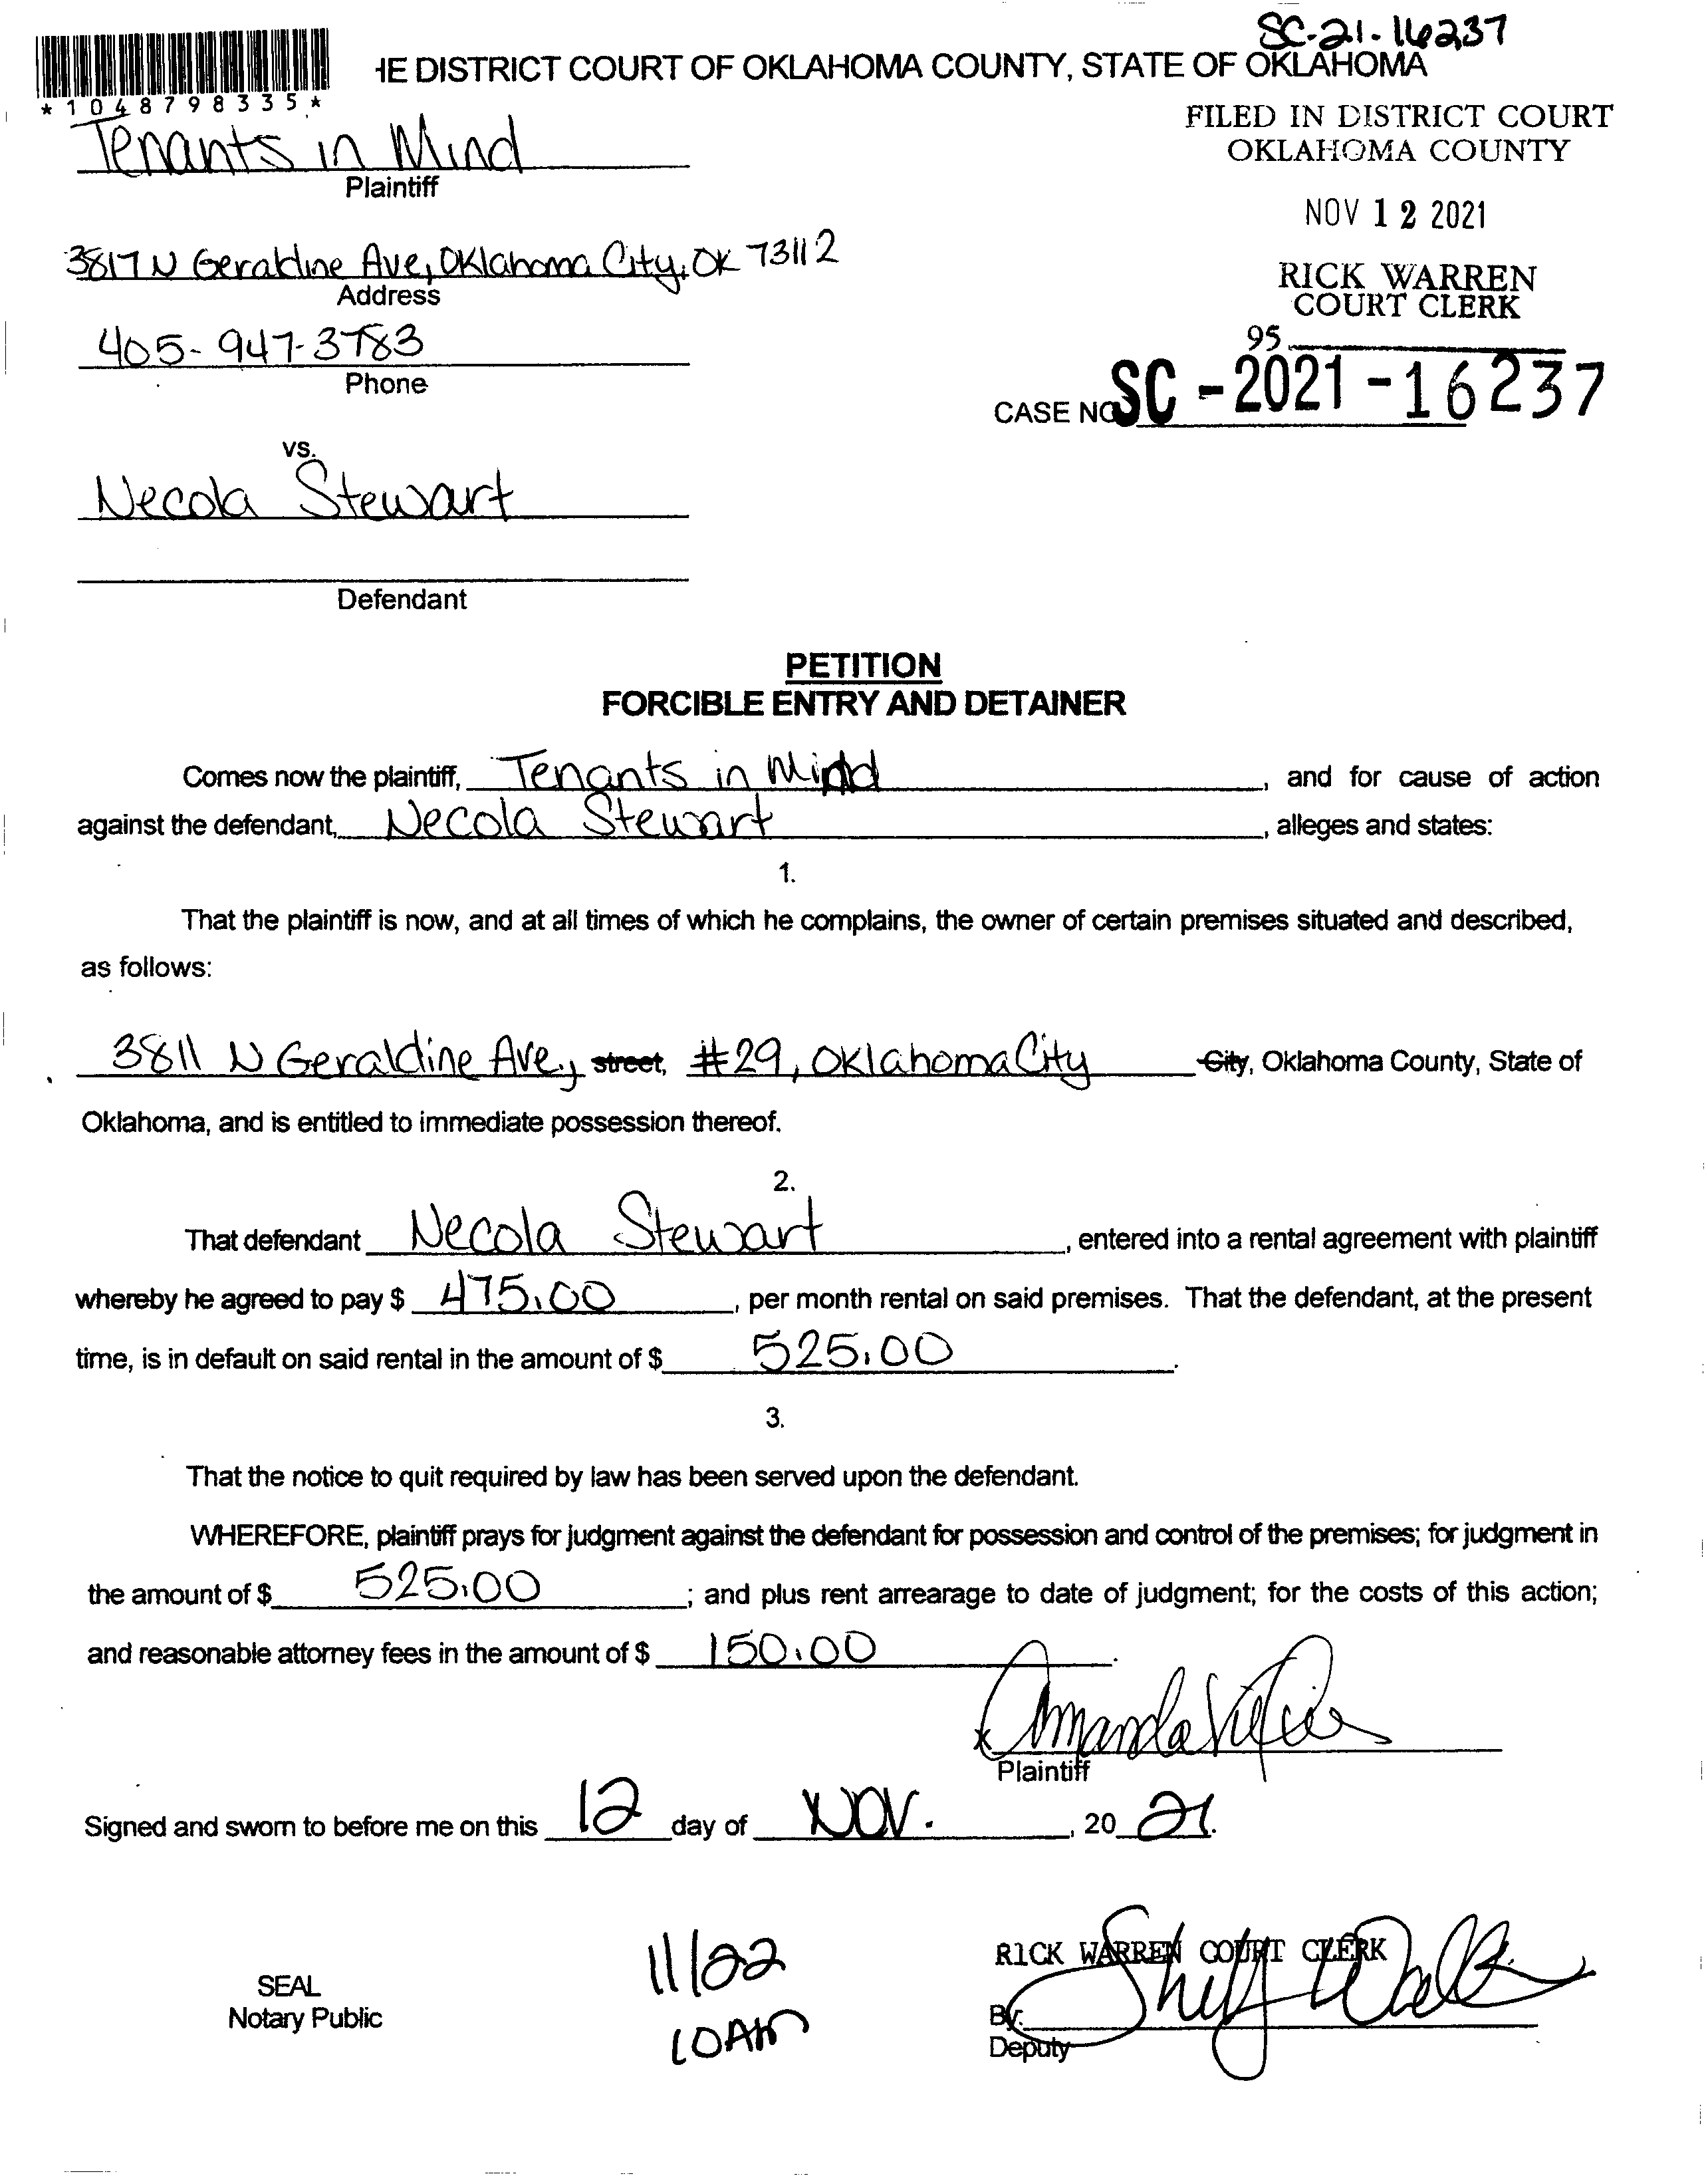 SC-21-16237
HE DISTRICT COURT OF OKLAHOMA COUNTY, STATE OF OKLAHOMA
*1048798335*
FILED IN DISTRICT COURT
OKLAHOMA COUNTY
Tenants in Mind
Plaintiff
NOV 12 2021
3817 N Geraldine Ave, Oklahoma City, OK 73112
Address
RICK WARREN
COURT CLERK
405-947-3783
Phone
95
CASE NO SC-2021-16237
vs.
Necola Stewart
Defendant
PETITION
FORCIBLE ENTRY AND DETAINER
Comes now the plaintiff, Tenants in Mind, and for cause of action
against the defendant, Necola Stewart, alleges and states:
1.
That the plaintiff is now, and at all times of which he complains, the owner of certain premises situated and described,
as follows:
3811 N Geraldine Ave, street, #29, Oklahoma City City, Oklahoma County, State of
Oklahoma, and is entitled to immediate possession thereof.
2.
That defendant Necola Stewart, entered into a rental agreement with plaintiff
whereby he agreed to pay $ 475.00, per month rental on said premises. That the defendant, at the present
time, is in default on said rental in the amount of $ 525.00.
3.
That the notice to quit required by law has been served upon the defendant.
WHEREFORE, plaintiff prays for judgment against the defendant for possession and control of the premises; for judgment in
the amount of $ 525.00; and plus rent arrearage to date of judgment; for the costs of this action;
and reasonable attorney fees in the amount of $ 150.00.
x Amanda
Plaintiff
Signed and sworn to before me on this 12 day of Nov., 2021.
11/22
10AM
SEAL
Notary Public
RICK WARREN COURT CLERK
By:
Deputy